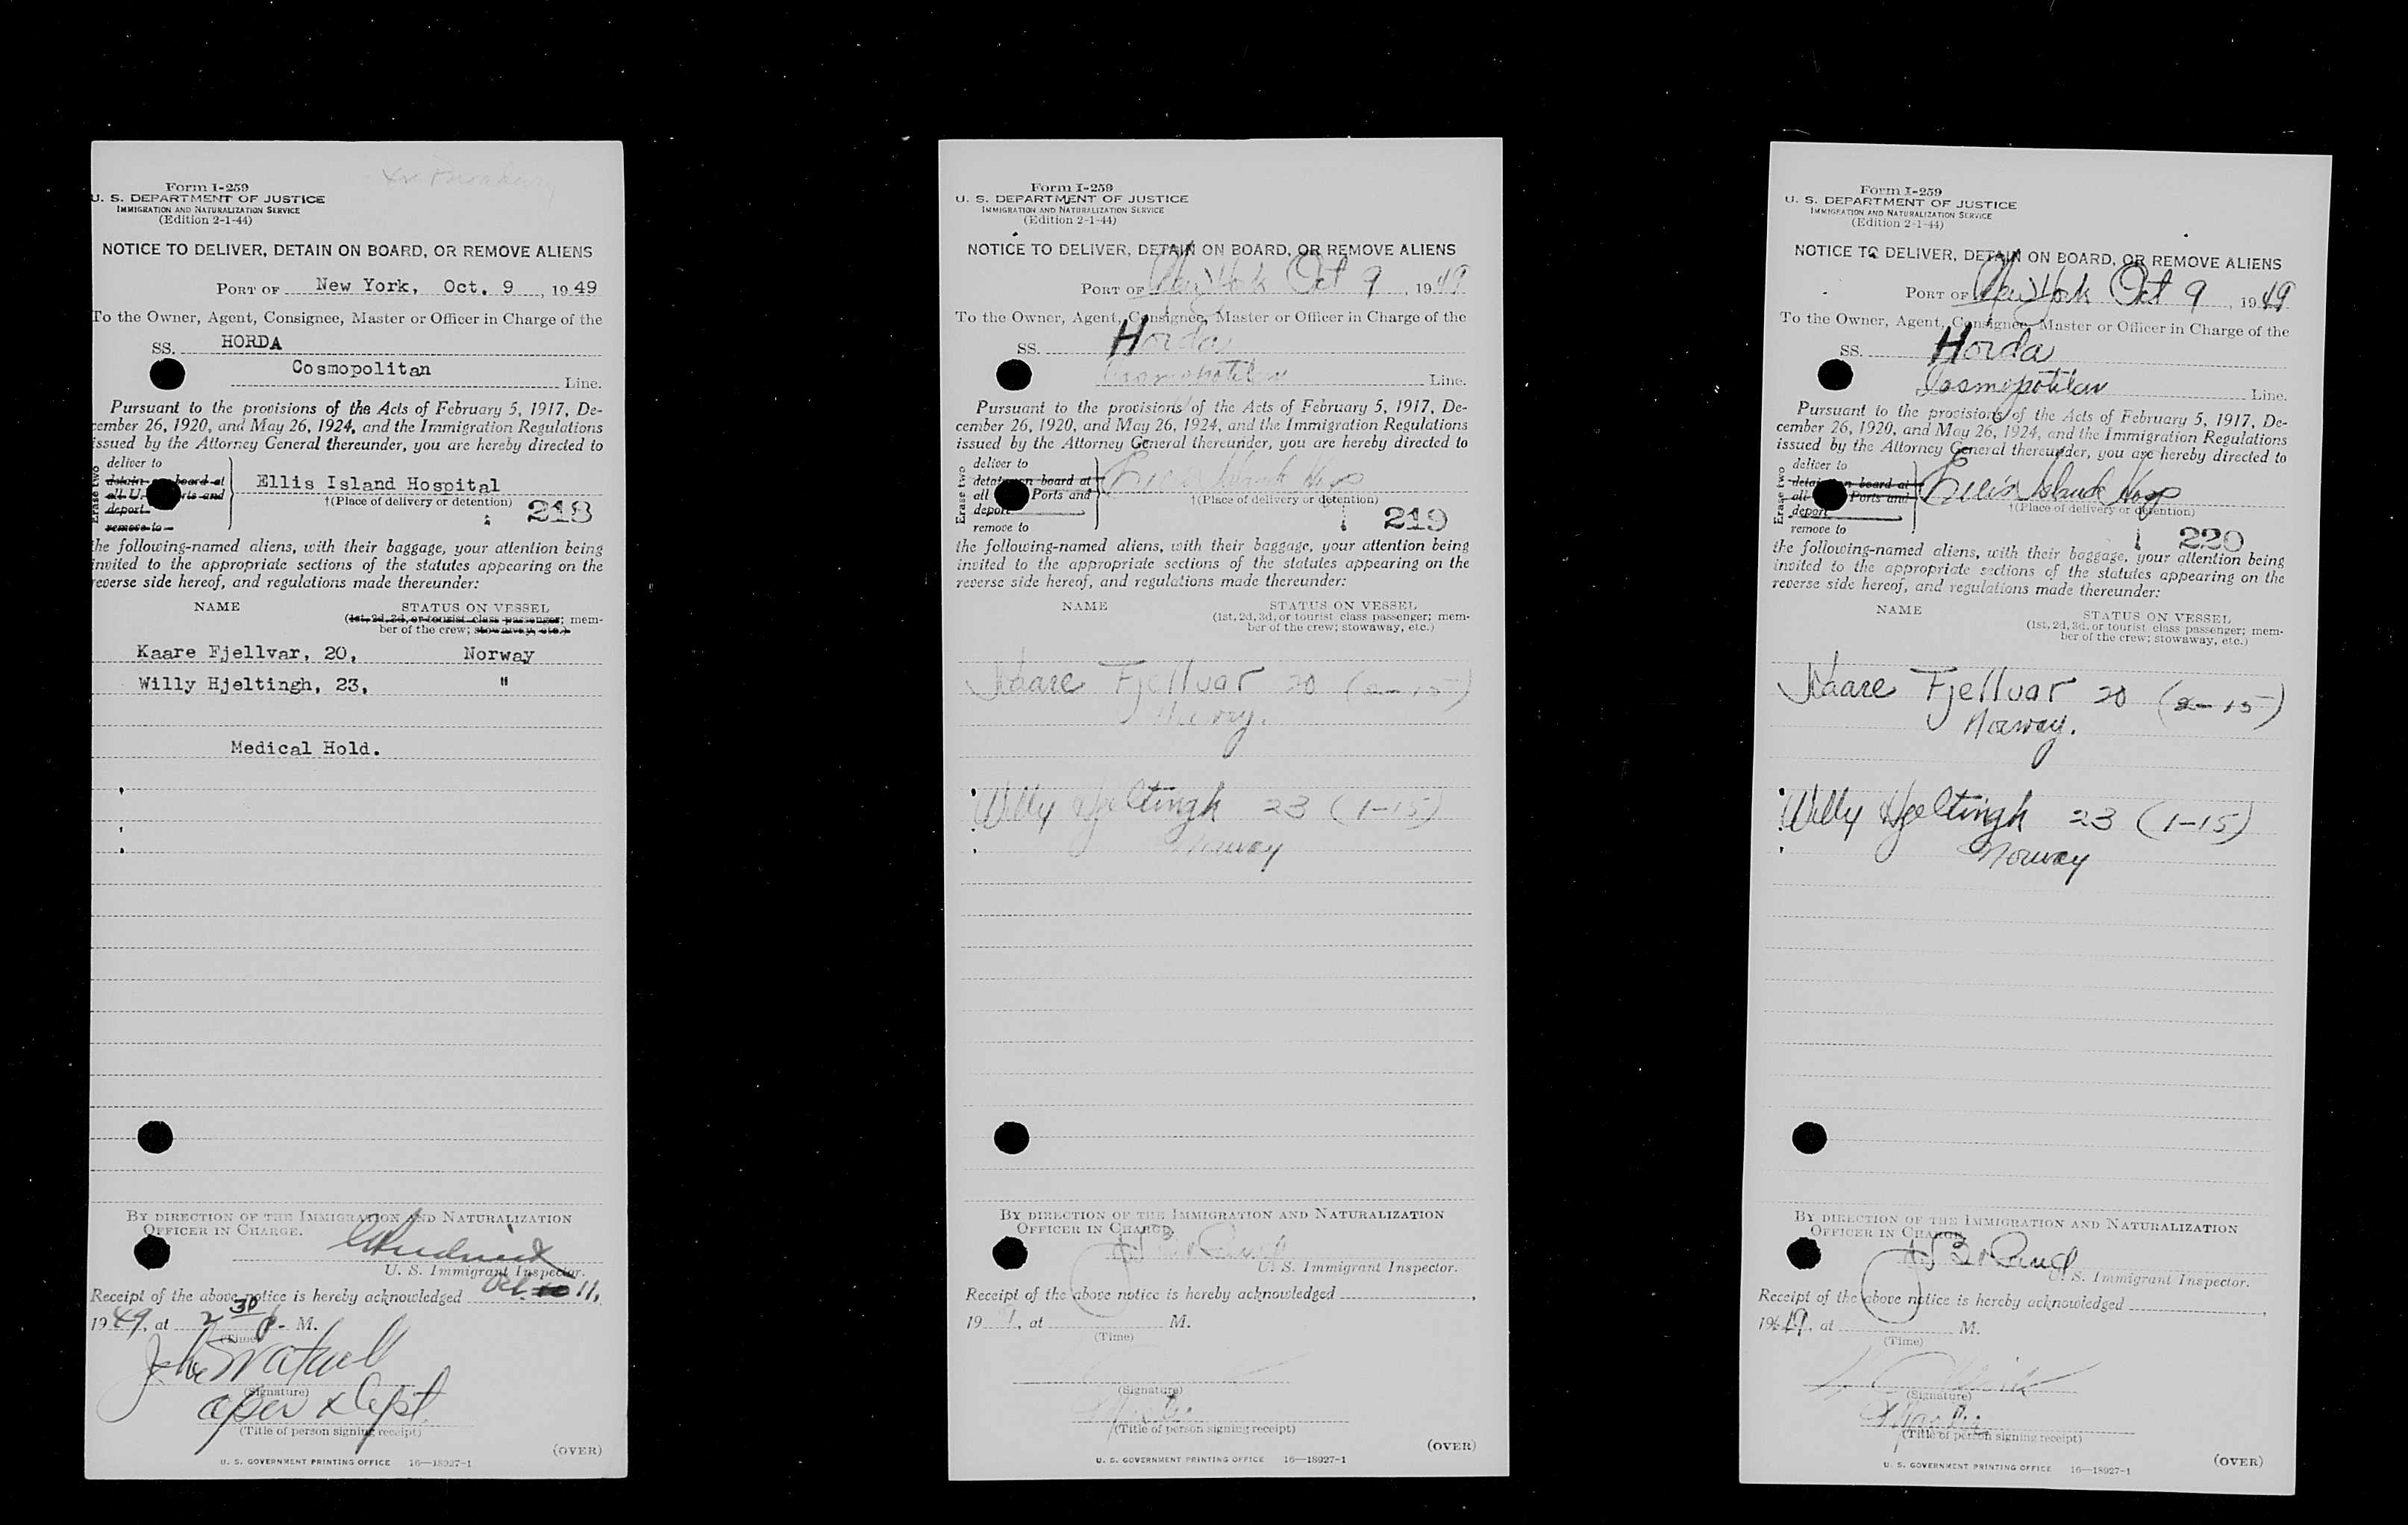 Form I-259
U. S. DEPARTMENT OF JUSTICE
IMMIGRATION AND NATURALIZATION SERVICE
(Edition 2-1-44)
NOTICE TO DELIVER, DETAIN ON BOARD, OR REMOVE ALIENS
PORT OF New York, Oct. 9, 19 49
To the Owner, Agent, Consignee, Master or Officer in Charge of the
SS. HORDA
Cosmopolitan Line.
Pursuant to the provisions of the Acts of February 5, 1917, De-
cember 26, 1920, and May 26, 1924, and the Immigration Regulations
issued by the Attorney General thereunder, you are hereby directed to
Erase two
deliver to
detain board at
all U. rts and
deport
remove to
Ellis Island Hospital
†(Place of delivery or detention)
218
the following-named aliens, with their baggage, your attention being
invited to the appropriate sections of the statutes appearing on the
reverse side hereof, and regulations made thereunder:
NAME STATUS ON VESSEL
(1st, 2d, 3d, or tourist class passenger; mem-
ber of the crew; stowaway, etc.)
Kaare Fjellvar, 20, Norway
Willy Hjeltingh, 23, "
Medical Hold.
BY DIRECTION OF THE IMMIGRATION AND NATURALIZATION
OFFICER IN CHARGE.
U. S. Immigrant Inspector.
Receipt of the above notice is hereby acknowledged Oct. 11,
19 49, at 2 30 P. M.
(Time)
John
(Signature)
(Title of person signing receipt)
(OVER)
U. S. GOVERNMENT PRINTING OFFICE 16—18927-1
Form I-259
U. S. DEPARTMENT OF JUSTICE
IMMIGRATION AND NATURALIZATION SERVICE
(Edition 2-1-44)
NOTICE TO DELIVER, DETAIN ON BOARD, OR REMOVE ALIENS
PORT OF New York Oct 9, 19 49
To the Owner, Agent, Consignee, Master or Officer in Charge of the
SS. Horda
Cosmopolitan Line.
Pursuant to the provisions of the Acts of February 5, 1917, De-
cember 26, 1920, and May 26, 1924, and the Immigration Regulations
issued by the Attorney General thereunder, you are hereby directed to
Erase two
deliver to
detain on board at
all Ports and
deport
remove to
Ellis Island Hosp
†(Place of delivery or detention)
219
the following-named aliens, with their baggage, your attention being
invited to the appropriate sections of the statutes appearing on the
reverse side hereof, and regulations made thereunder:
NAME STATUS ON VESSEL
(1st, 2d, 3d, or tourist class passenger; mem-
ber of the crew; stowaway, etc.)
Kaare Fjellvar 20 (2-15)
Norway.
Willy Hjeltingh 23 (1-15)
Norway
BY DIRECTION OF THE IMMIGRATION AND NATURALIZATION
OFFICER IN CHARGE.
U. S. Immigrant Inspector.
Receipt of the above notice is hereby acknowledged
19 , at M.
(Time)
(Signature)
(Title of person signing receipt)
(OVER)
U. S. GOVERNMENT PRINTING OFFICE 16—18927-1
Form I-259
U. S. DEPARTMENT OF JUSTICE
IMMIGRATION AND NATURALIZATION SERVICE
(Edition 2-1-44)
NOTICE TO DELIVER, DETAIN ON BOARD, OR REMOVE ALIENS
PORT OF New York Oct 9, 19 49
To the Owner, Agent, Consignee, Master or Officer in Charge of the
SS. Horda
Cosmopolitan Line.
Pursuant to the provisions of the Acts of February 5, 1917, De-
cember 26, 1920, and May 26, 1924, and the Immigration Regulations
issued by the Attorney General thereunder, you are hereby directed to
Erase two
deliver to
detain on board at
all Ports and
deport
remove to
Ellis Island Hosp
†(Place of delivery or detention)
220
the following-named aliens, with their baggage, your attention being
invited to the appropriate sections of the statutes appearing on the
reverse side hereof, and regulations made thereunder:
NAME STATUS ON VESSEL
(1st, 2d, 3d, or tourist class passenger; mem-
ber of the crew; stowaway, etc.)
Kaare Fjellvar 20 (2-15)
Norway.
Willy Hjeltingh 23 (1-15)
Norway
BY DIRECTION OF THE IMMIGRATION AND NATURALIZATION
OFFICER IN CHARGE.
U. S. Immigrant Inspector.
Receipt of the above notice is hereby acknowledged
19 49, at M.
(Time)
(Signature)
(Title of person signing receipt)
(OVER)
U. S. GOVERNMENT PRINTING OFFICE 16—18927-1